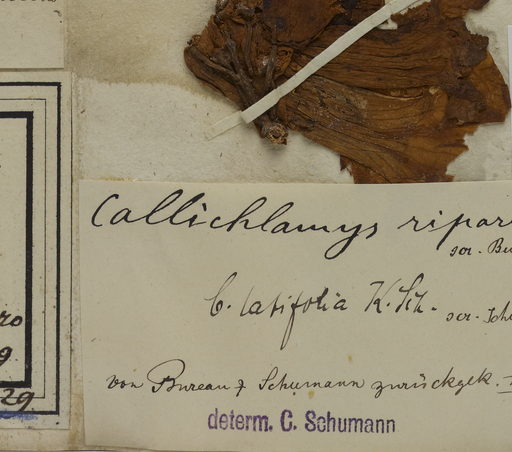 Callichlamys ripar
scr. Bu
C. latifolia K. Sch.
scr. Schu
von Bureau & Schumann zurückgek.
determ. C. Schumann
ro
9
29